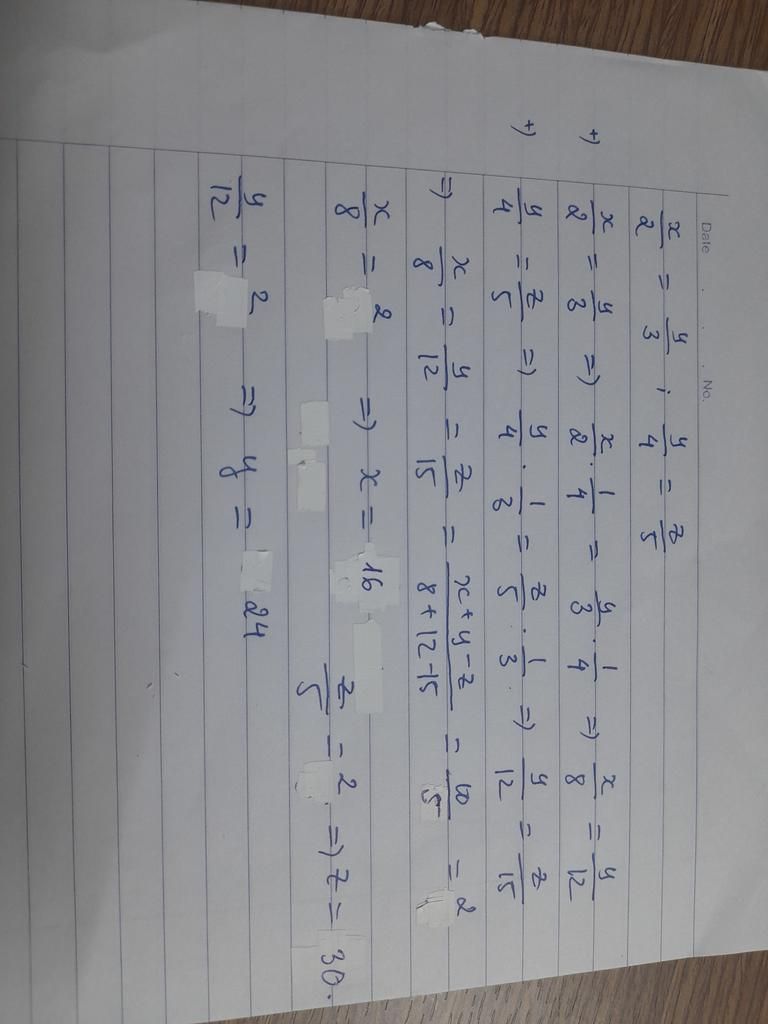 Date . . . No.
x/2 = y/3 ; y/4 = z/5
+) x/2 = y/3 => x/2 . 1/4 = y/3 . 1/4 => x/8 = y/12
+) y/4 = z/5 => y/4 . 1/3 = z/5 . 1/3 . => y/12 = z/15
=> x/8 = y/12 = z/15 = x+y-z/8+12-15 = 10/5 = 2
x/8 = 2 => x = 16
z/5 = 2 => z = 30.
y/12 = 2 => y = 24